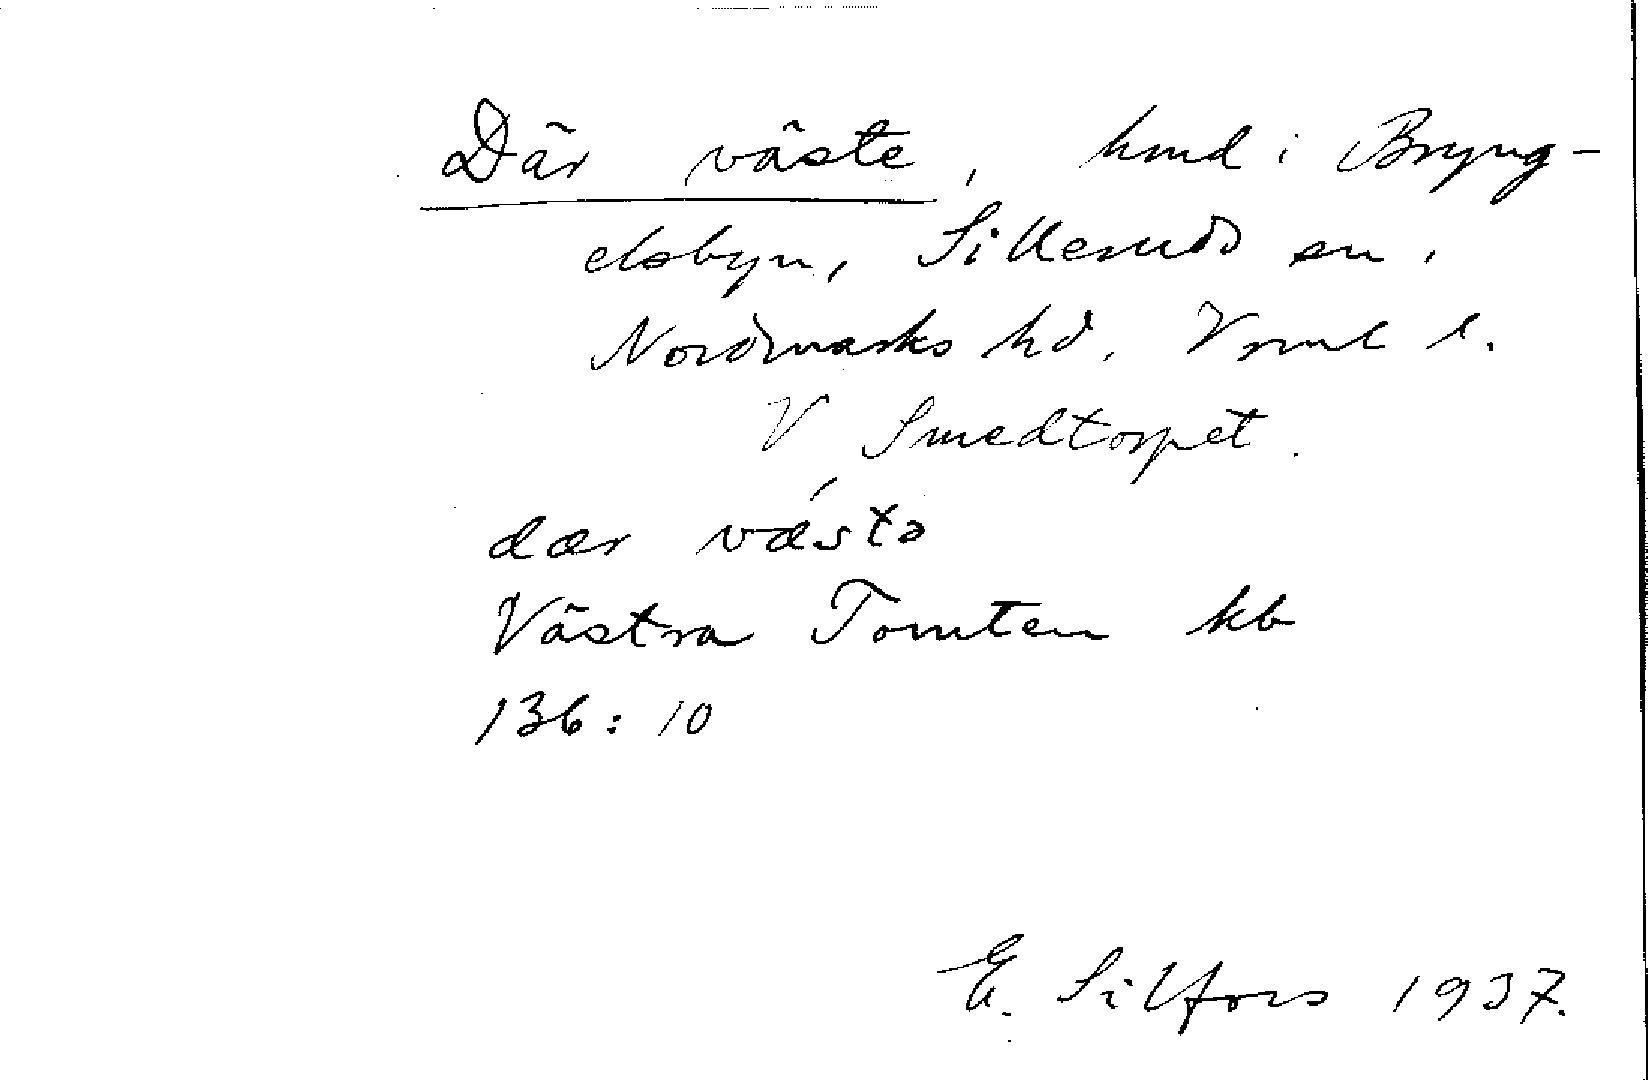 Där väste, hmd i Bryng-
elsbyn, Silleruds sn,
Nordmarks hd. Vrml l.
V Smedtorpet.
dær vǽstə
Västra Tomten kb
136: 10
E. Silfors 1937.